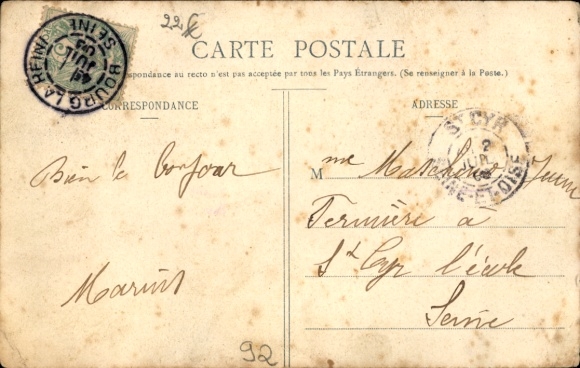 22
CARTE POSTALE
La Correspondance au recto n'est pas acceptée par tous les Pays Étrangers. (Se renseigner à la Poste.)
BOURG LA REINE
SEINE
JUIL
05
CORRESPONDANCE
ADRESSE
ST CYR
2
JUIL
SEINE-ET-OISE
Bien le bonjour
Mme
Fermière a
St Cyr l'école
Seine
92